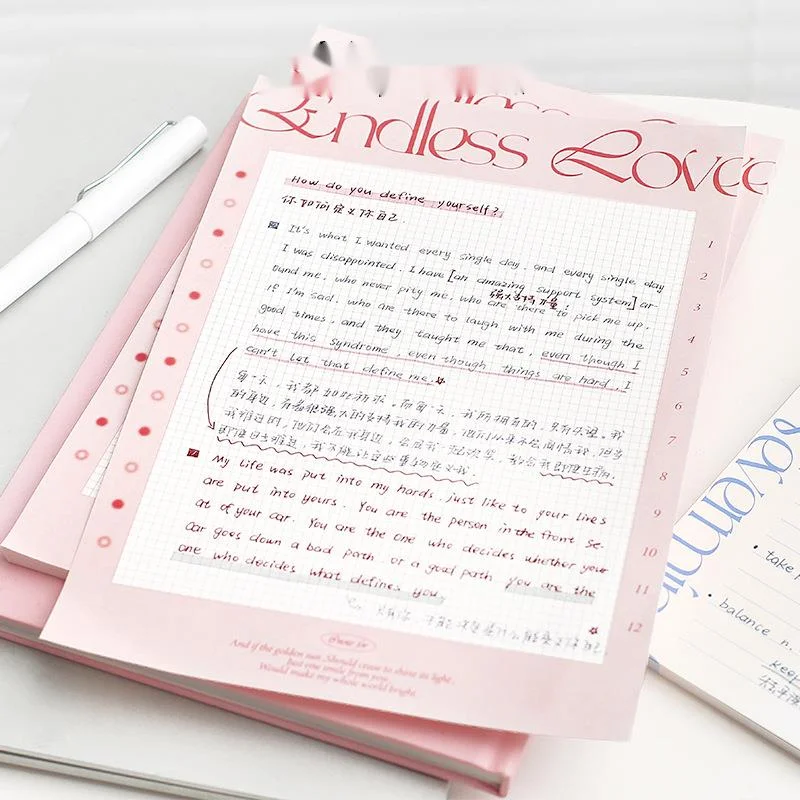 Endless Love
How do you define yourself?
你如何定义你自己.
It's what I wanted every single day, and every single day
I was disappointed. I have [an amazing support system] ar-
ound me, who never pity me, who are there to pick me up,
强大的支持力量
if I'm sad, who are there to laugh with me during the
good times, and they taught me that, even though I
have this syndrome, even though things are hard, I
can't let that define me.
每一天,我都如此祈求.而每一天,我所拥有的,只有失望.我
的身边,有着很强大的支持我的力量,他们从来不会同情我,但当
我难过时,他们会在我身边,会逗我一起欢笑,教会我即使生病,
即使日子难过,我不能让这些事物定义我.
My life was put into my hands, just like to your lives
are put into yours. You are the person in the front se-
at of your car. You are the one who decides whether your
car goes down a bad path, or a good path. you are the
one who decides what defines you.
只有你,才能决定是什么能定义你自己
1
2
3
4
5
6
7
8
9
10
11
12
And if the golden sun, Should cease to shine its light,
Just one smile from you,
Would make my whole world bright.
take
balance n.
keep